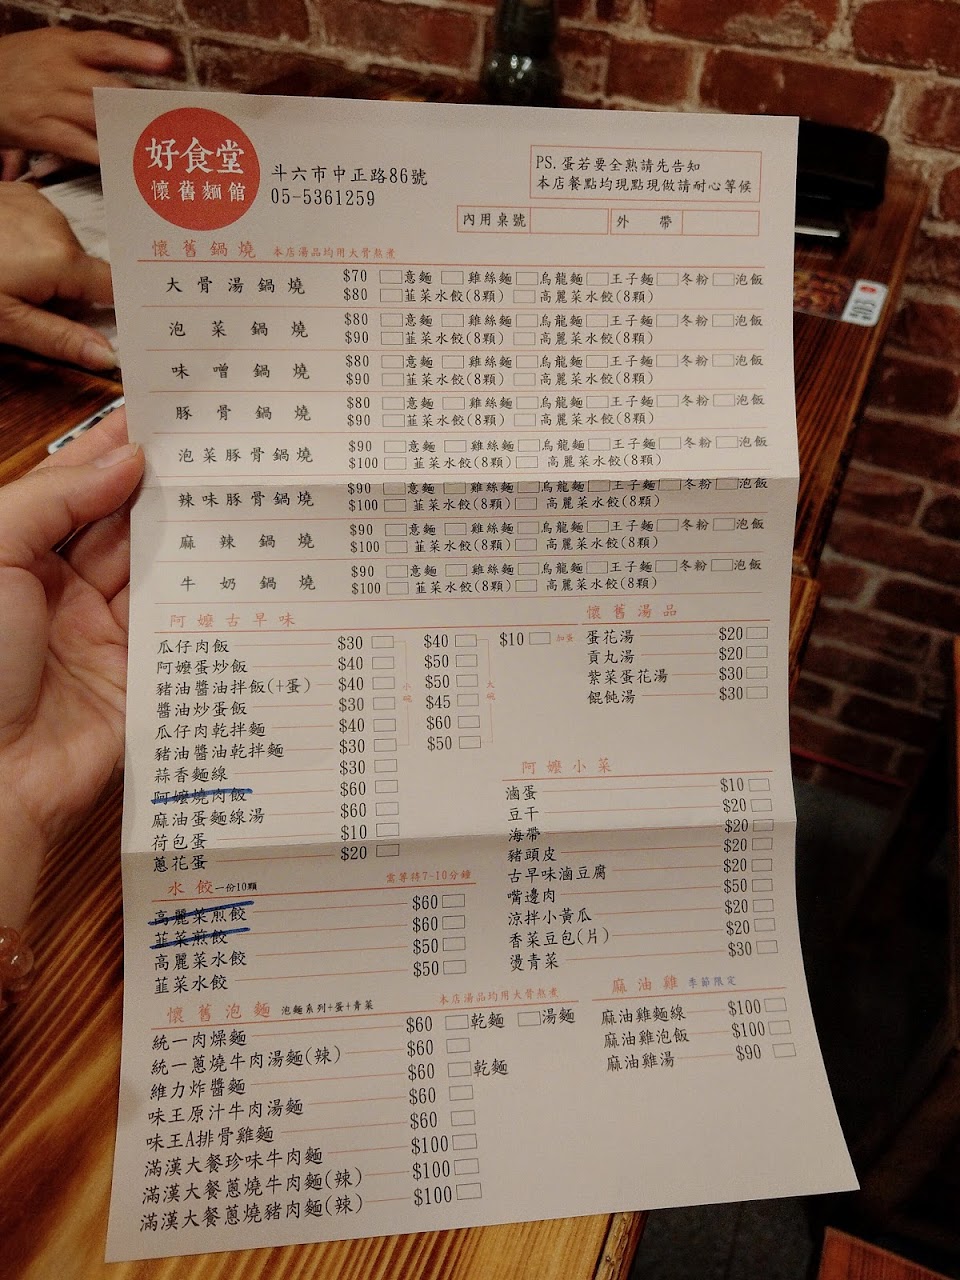 好食堂
懷舊麵館
斗六市中正路86號
05-5361259
PS. 蛋若要全熟請先告知
本店餐點均現點現做請耐心等候
內用桌號 外帶
懷舊鍋燒 本店湯品均用大骨熬煮
大骨湯鍋燒 $70 意麵 雞絲麵 烏龍麵 王子麵 冬粉 泡飯
$80 韮菜水餃(8顆) 高麗菜水餃(8顆)
泡菜鍋燒 $80 意麵 雞絲麵 烏龍麵 王子麵 冬粉 泡飯
$90 韮菜水餃(8顆) 高麗菜水餃(8顆)
味噌鍋燒 $80 意麵 雞絲麵 烏龍麵 王子麵 冬粉 泡飯
$90 韮菜水餃(8顆) 高麗菜水餃(8顆)
豚骨鍋燒 $80 意麵 雞絲麵 烏龍麵 王子麵 冬粉 泡飯
$90 韮菜水餃(8顆) 高麗菜水餃(8顆)
泡菜豚骨鍋燒 $90 意麵 雞絲麵 烏龍麵 王子麵 冬粉 泡飯
$100 韮菜水餃(8顆) 高麗菜水餃(8顆)
辣味豚骨鍋燒 $90 意麵 雞絲麵 烏龍麵 王子麵 冬粉 泡飯
$100 韮菜水餃(8顆) 高麗菜水餃(8顆)
麻辣鍋燒 $90 意麵 雞絲麵 烏龍麵 王子麵 冬粉 泡飯
$100 韮菜水餃(8顆) 高麗菜水餃(8顆)
牛奶鍋燒 $90 意麵 雞絲麵 烏龍麵 王子麵 冬粉 泡飯
$100 韮菜水餃(8顆) 高麗菜水餃(8顆)
阿嬤古早味
瓜仔肉飯 $30 $40 $10 加蛋
阿嬤蛋炒飯 $40 $50
豬油醬油拌飯(+蛋) $40 小碗 $50 大碗
醬油炒蛋飯 $30 $45
瓜仔肉乾拌麵 $40 $60
豬油醬油乾拌麵 $30 $50
蒜香麵線 $30
阿嬤燒肉飯 $60
麻油蛋麵線湯 $60
荷包蛋 $10
蔥花蛋 $20
懷舊湯品
蛋花湯 $20
貢丸湯 $20
紫菜蛋花湯 $30
餛飩湯 $30
阿嬤小菜
滷蛋 $10
豆干 $20
海帶 $20
豬頭皮 $20
古早味滷豆腐 $20
嘴邊肉 $50
涼拌小黃瓜 $20
香菜豆包(片) $20
燙青菜 $30
水餃 一份10顆 需等待7~10分鐘
高麗菜煎餃 $60
韮菜煎餃 $60
高麗菜水餃 $50
韮菜水餃 $50
懷舊泡麵 泡麵系列+蛋+青菜 本店湯品均用大骨熬煮
統一肉燥麵 $60 乾麵 湯麵
統一蔥燒牛肉湯麵(辣) $60
維力炸醬麵 $60 乾麵
味王原汁牛肉湯麵 $60
味王A排骨雞麵 $60
滿漢大餐珍味牛肉麵 $100
滿漢大餐蔥燒牛肉麵(辣) $100
滿漢大餐蔥燒豬肉麵(辣) $100
麻油雞 季節限定
麻油雞麵線 $100
麻油雞泡飯 $100
麻油雞湯 $90